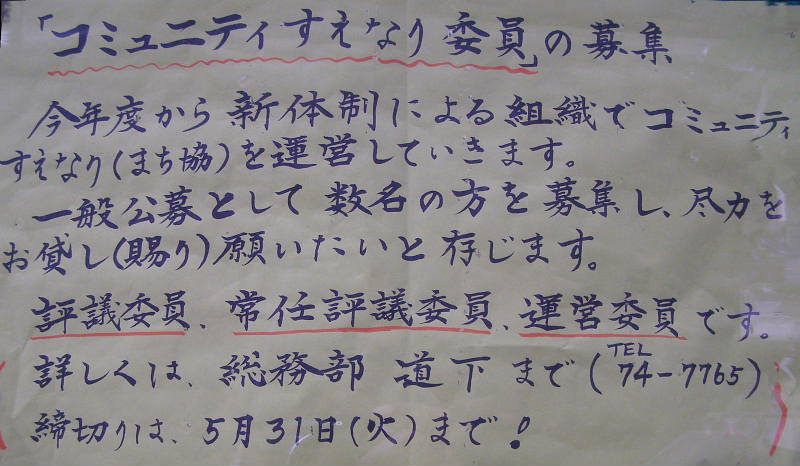 「コミュニティすえなり委員」の募集
今年度から新体制による組織でコミュニティ
すえなり(まち協)を運営していきます。
一般公募として数名の方を募集し、尽力を
お貸し(賜り)願いたいと存じます。
評議委員、常任評議委員、運営委員です。
詳しくは、総務部 道下まで(TEL 74-7765)
締切りは、5月31日(火)まで!